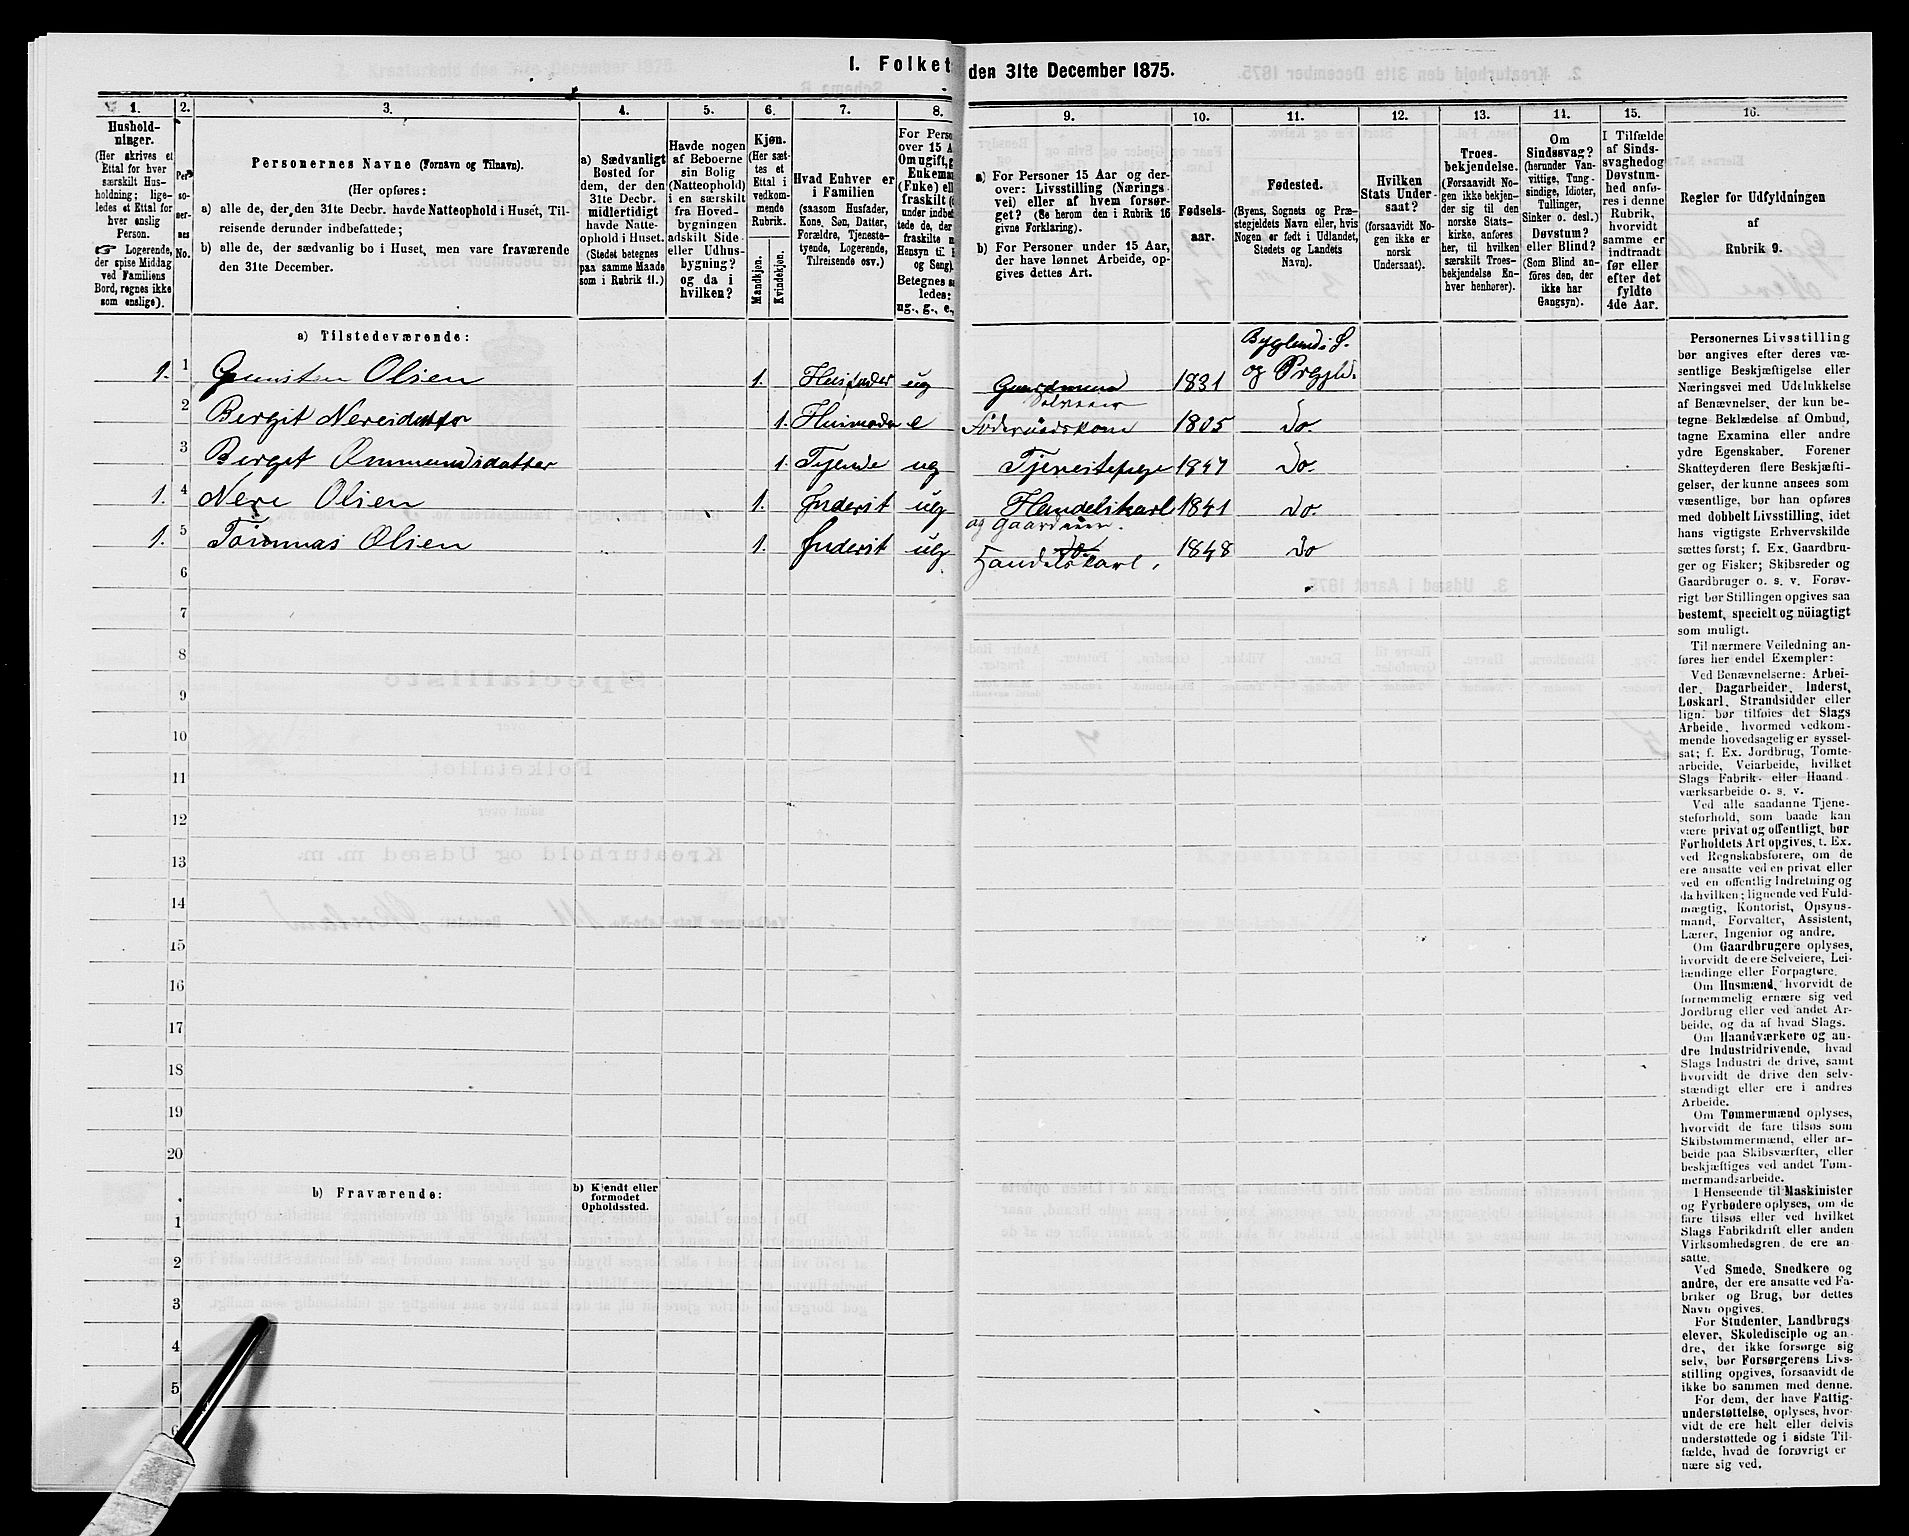 1. Folket
den 31te December 1875.
1.
Hushold-
ninger.
(Her skrives et
Ettal for hver
særskilt Hus-
holdning; lige-
ledes et Ettal for
hver enslig
Person.
☞ Logerende,
der spise Middag
ved Familiens
Bord, regnes ikke
som enslige).
2.
Per-
so-
ner-
nes
No.
3.
Personernes Navne (Fornavn og Tilnavn).
(Her opføres:
a) alle de, der den 31te Decbr. havde Natteophold i Huset, Til-
reisende derunder indbefattede;
b) alle de, der sædvanlig bo i Huset, men vare fraværende
den 31te December.
4.
a) Sædvanligt
Bosted for
dem, der den
31te Decbr.
midlertidigt
havde Natte-
ophold i Huset.
(Stedet betegnes
paa samme Maade
som i Rubrik 11.)
5.
Havde nogen
af Beboerne
sin Bolig
(Natteophold)
i en særskilt
fra Hoved-
bygningen
adskilt Side-
eller Udhus-
bygning?
og da i
hvilken?
6.
Kjøn.
(Her sæt-
tes et
Ettal i
vedkom-
mende
Rubrik.
Mandkjøn.
Kvindekjøn.
7.
Hvad Enhver er
i Familien
(saasom Husfader,
Kone, Søn, Datter,
Forældre, Tjeneste-
tyende, Logerende,
Tilreisende osv.)
8.
For Perso
over 15 A
Om ugift, g
Enkema
(Enke) ell
fraskilt (
under indbe
tede de, der
fraskilte
Hensyn til
og Seng).
Betegnes sa
ledes:
ug., g., e.,
9.
a) For Personer 15 Aar og der-
over: Livsstilling (Nærings-
vei) eller af hvem forsør-
get? (Se herom den i Rubrik 16
givne Forklaring).
b) For Personer under 15 Aar,
der have lønnet Arbeide, op-
gives dettes Art.
10.
Fødsels-
aar.
11.
Fødested.
(Byens, Sognets og Præ-
stegjeldets Navn eller, hvis
Nogen er født i Udlandet,
Stedets og Landets
Navn).
12.
Hvilken
Stats Under-
saat?
(forsaavidt No-
gen ikke er
norsk
Undersaat).
13.
Troes-
bekjendelse.
(Forsaavidt No-
gen ikke bekjen-
der sig til den
norske Stats-
kirke, anføres
her, til hvilken
særskilt Troes-
bekjendelse En-
hver henhører).
14.
Om
Sindssvag?
(herunder Van-
vittige, Tung-
sindige, Idioter,
Tullinger,
Sinker o. desl.)
Døvstum?
eller Blind?
(Som Blind an-
føres den, der
ikke har
Gangsyn).
15.
I Tilfælde
af Sinds-
svaghed og
Døvstum-
hed anfø-
res i denne
Rubrik,
hvorvidt
samme er
indtraadt
før eller
efter det
fyldte
4de Aar.
16.
Regler for Udfyldningen
af
Rubrik 9.
a) Tilstedeværende:
Bygland S.
og Prgjld.
1. 1 Gunsten Olsen 1. Husfader ug Gaardmand 1831
Selveier
2 Birgit Nereidatter 1. Husmoder e Føderaadskone 1805 Do.
3 Birget Ommundsdatter 1. Tjende ug Tjenestepige 1847 Do.
1. 4 Nere Olsen 1. Inderst ug Handelskarl 1841 Do.
og Gaardmann.
1. 5 Tommas Olsen 1. Inderst ug Do. 1848 Do
Handelskarl.
6
7
8
9
10
11
12
13
14
15
16
17
18
19
20
b) Fraværende:
b) Kjendt eller
formodet
Opholdssted.
1
2
3
4
5
6
Personernes Livsstilling
bør angives efter deres væ-
sentlige Beskjæftigelse eller
Næringsvei med Udelukkelse
af Benævnelser, der kun be-
tegne Beklædelse af Ombud,
tagne Examina eller andre
ydre Egenskaber. Forener
Skatteyderen flere Beskjæfti-
gelser, der kunne ansees som
væsentlige, bør han opføres
med dobbelt Livsstilling, idet
hans vigtigste Erhvervskilde
sættes først; f. Ex. Gaardbru-
ger og Fisker; Skibsreder og
Gaardbruger o. s. v. Forøv-
rigt bør Stillingen opgives saa
bestemt, specielt og nöiagtigt
som muligt.
Til nærmere Veiledning an-
føres her endel Exempler:
Ved Benævnelserne: Arbei-
der, Dagarbeider, Inderst,
Løskarl, Strandsidder eller
lign. bør tilføies det Slags
Arbeide, hvormed vedkom-
mende hovedsagelig er syssel-
sat; f. Ex. Jordbrug, Tomte-
arbeide, Veiarbeide, hvilket
Slags Fabrik- eller Haand
værksarbeide o. s. v.
Ved alle saadanne Tjene-
steforhold, som baade kan
være privat og offentligt, bør
Forholdets Art opgives, t. Ex.
ved Regnskabsførere, om de
ere ansatte ved en privat eller
ved en offentlig Indretning og
da hvilken; lignende ved Fuld-
mægtig, Kontorist, Opsyns-
mand, Forvalter, Assistent,
Lærer, Ingeniør og andre.
Om Gaardbrugere oplyses,
hvorvidt de ere Selveiere, Lei-
lændinge eller Forpagtere.
Om Husmænd, hvorvidt de
fornemmelig ernære sig ved
Jordbrug eller ved andet Ar-
beide, og da af hvad Slags.
Om Haandværkere og an-
dre Industridrivende, hvad
Slags Industri de drive, samt
hvorvidt de drive den selv-
stændigt eller ere i andres
Arbeide.
Om Tømmermænd oplyses,
hvorvidt de fare tilsøs som
Skibstømmermænd, eller ar-
beide paa Skibsværfter, eller
beskjæftiges ved andet Tøm-
mermandsarbeide.
I Henseende til Maskinister
og Fyrbødere oplyses, om de
fare tilsøs eller ved hvilket
Slags Fabrikdrift eller anden
Virksomhedsgren de ere an-
satte.
Ved Smede, Snedkere og
andre, der ere ansatte ved Fa-
briker og Brug, bør dettes
Navn opgives.
For Studenter, Landbrugs
elever, Skoledisciple og an-
dre, der ikke forsørge sig
selv, bør Forsørgerens Livs-
stilling opgives, forsaavidt de
ikke bo sammen med denne.
For dem, der have Fattig-
understøttelse, oplyses, hvor-
vidt de ere helt eller delvis
understøttede og i sidste Til-
fælde, hvad de forøvrigt er
nære sig ved.